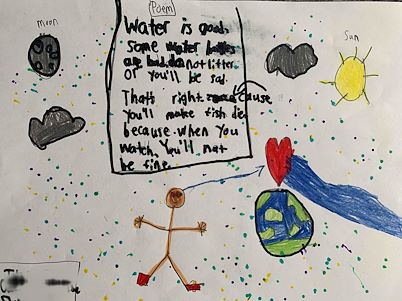 Poem
moon
Sun
Water is good,
some water bottles
are bad, do not litter
or you'll be sad.
That's right cause
you'll make fish die
because when you
watch, you'll not
be fine.